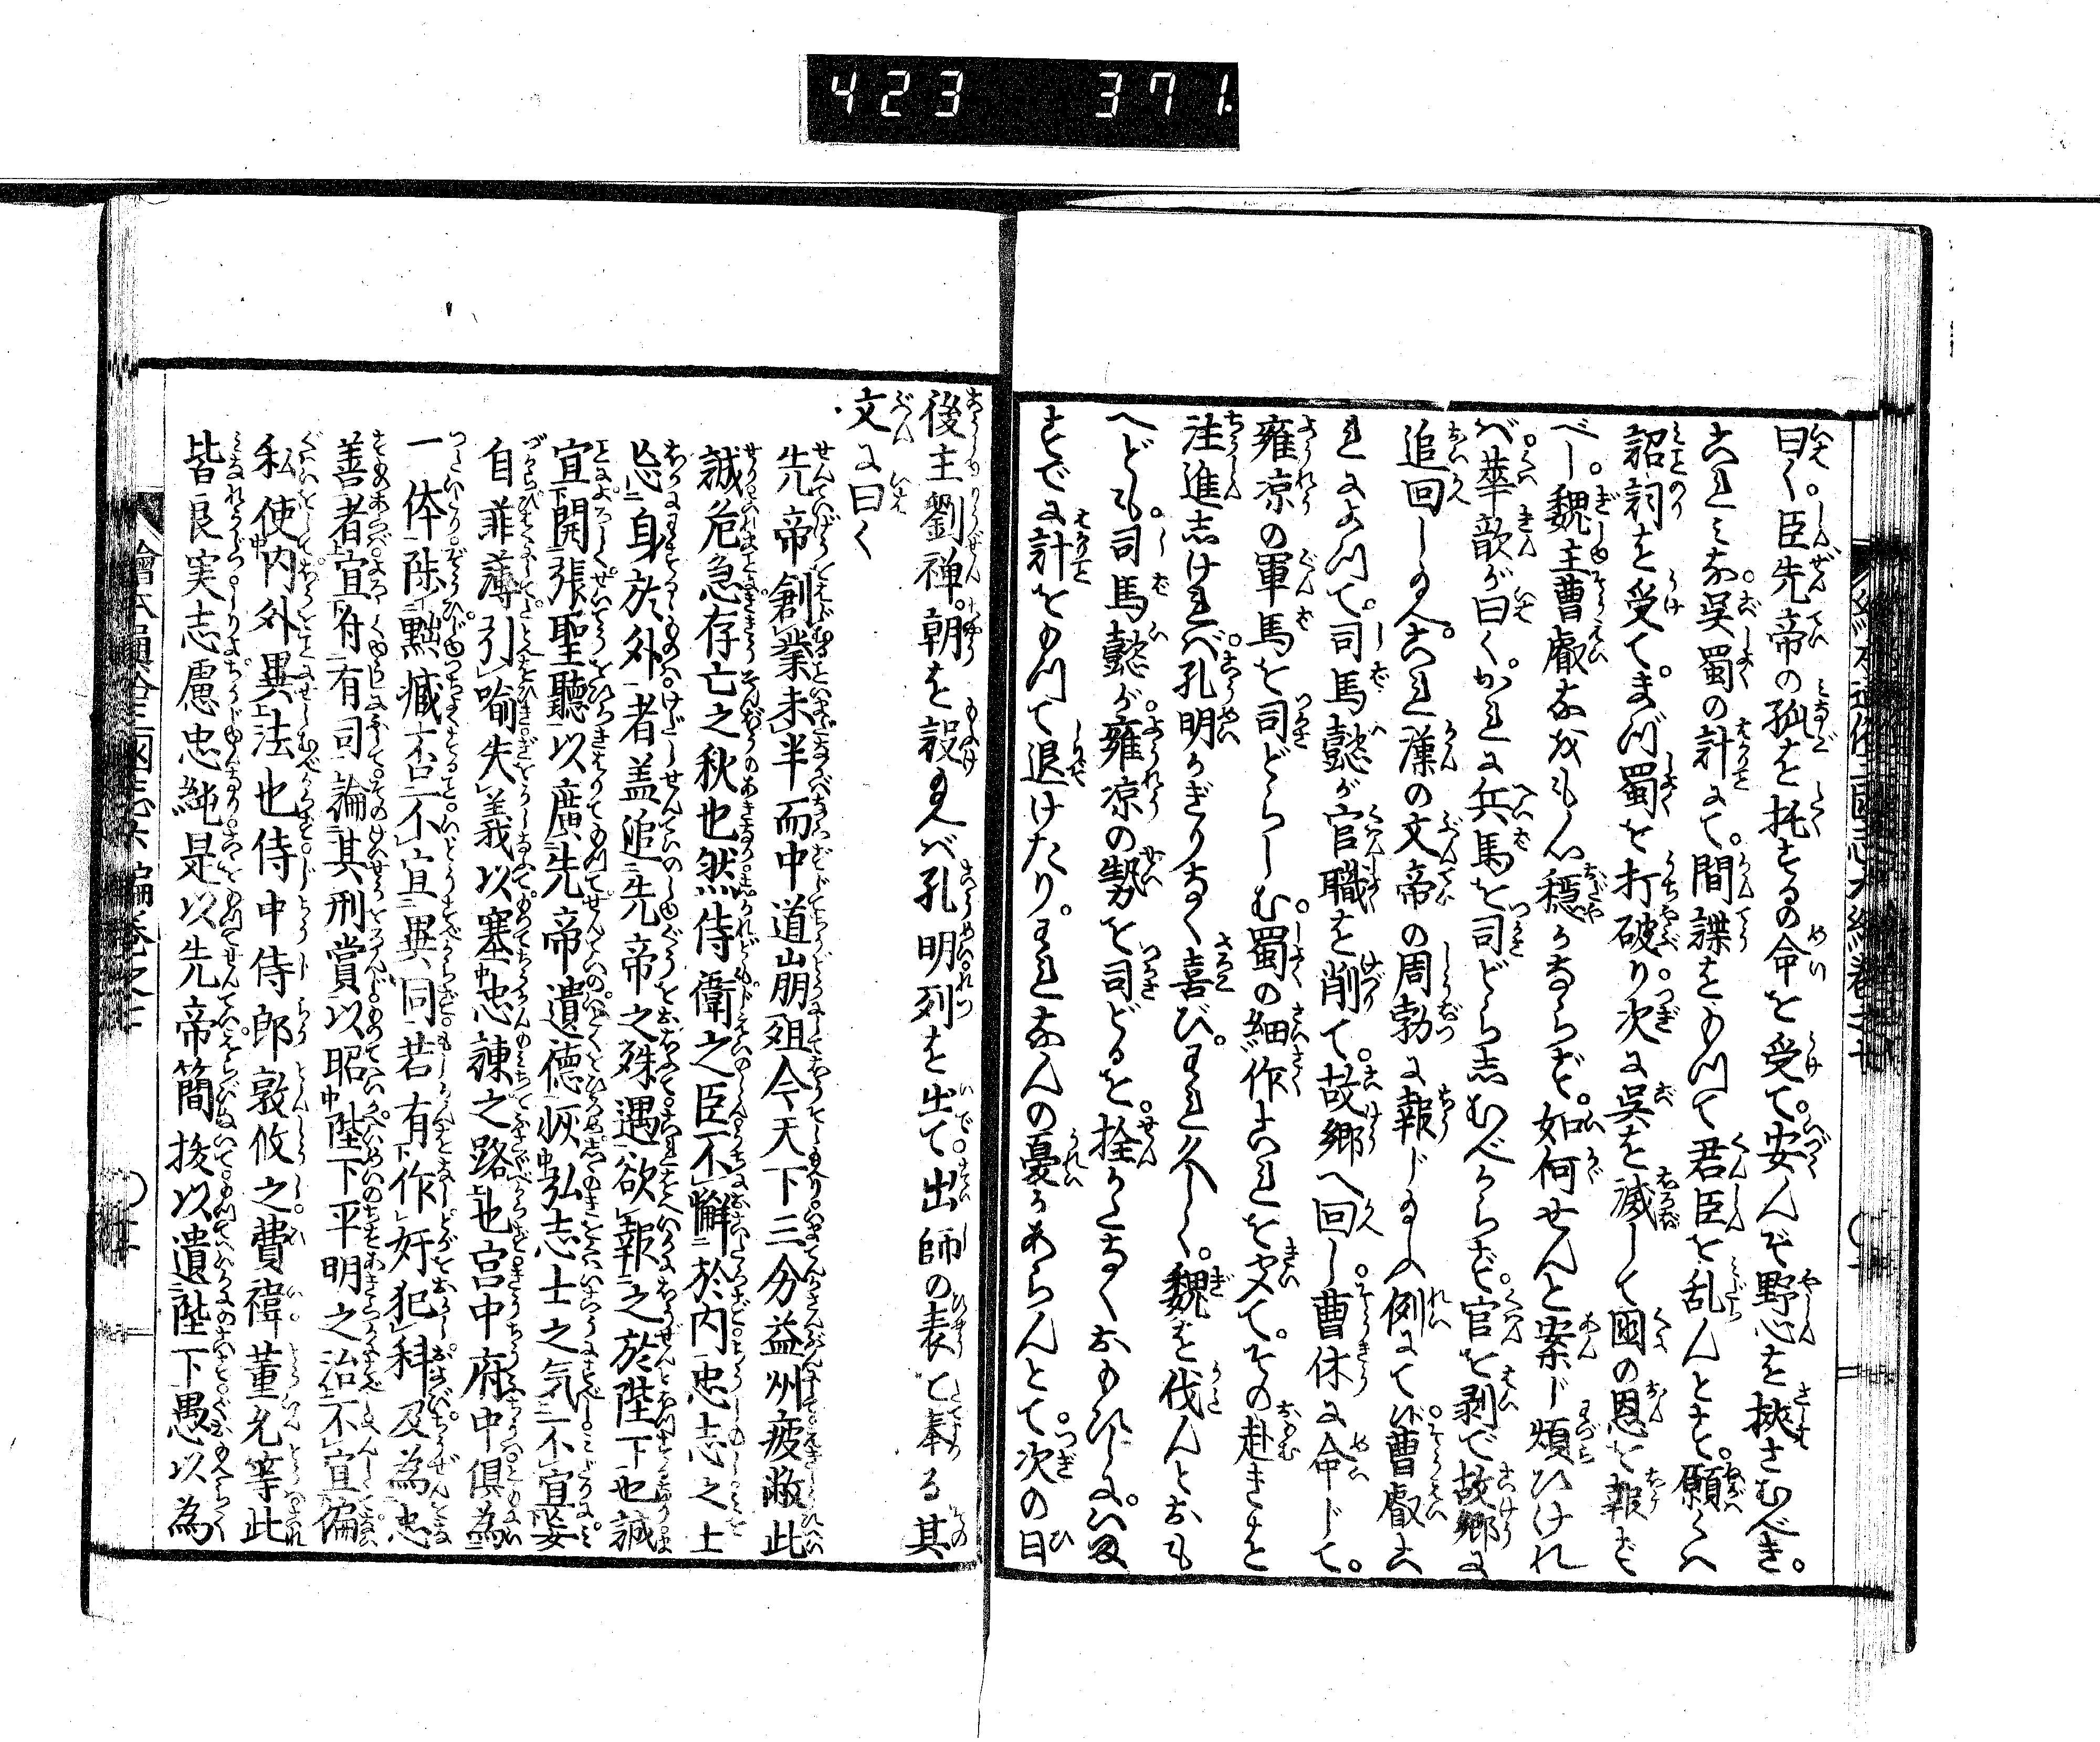 423 371
曰く。臣先帝の孤を托するの命を受て。安んぞ野心を挾さむべき。
これみな呉蜀の計にて。間諜をもつて君臣を乱んとす。願くハ
詔詞を受て。まづ蜀を打破り次に呉を滅して国の恩を報ず
べし。魏主曹叡なほも心穏かならず。如何せんと案じ煩ひけれ
ば華歆が曰く。かれに兵馬を司どらしむべからず。官を剥で故郷に
追回し給へ。これ漢の文帝の周勃に報じ給ふ例にて候曹叡こ
れによつて。司馬懿が官職を削て。故郷へ回し曹休に命じて。
雍凉の軍馬を司どらしむ。蜀の細作これを聞て。その赴きを
注進しければ孔明かぎりなく喜び。われ久しく。魏を伐んとおも
へども司馬懿が雍凉の勢を司どるを。詮かたなくおもひしに。今
すでに計をもつて退けたり。われなんの憂かあらんとて次の日
後主劉禅。朝を設給へバ孔明列を出て出師の表を奉る其
文に曰く
先帝創業未半而中道崩殂今天下三分益州疲敝此
誠危急存亡之秋也然侍衛之臣不懈於内忠志之士
忘身於外者盖追先帝之殊遇欲報之於陛下也誠
宜開張聖聽以廣先帝遺徳恢弘志士之気不宜妄
自菲薄引喻失義以塞忠諫之路也宮中府中倶為
一体陟黜臧否不宜異同若有作奸犯科及為忠
善者宜付有司論其刑賞以昭陛下平明之治不宜偏
私使内外異法也侍中侍郎敦攸之費禕董允等此
皆良実志慮忠純是以先帝簡拔以遺陛下愚以為
繪本通俗三國志六編卷之七